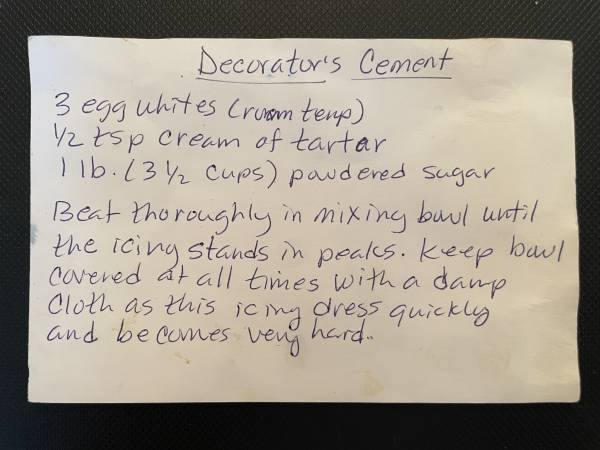 Decorator's Cement
3 egg whites (room temp)
1/2 tsp cream of tartar
1 lb. (3 1/2 cups) powdered sugar
Beat thoroughly in mixing bowl until
the icing stands in peaks. Keep bowl
covered at all times with a damp
cloth as this icing dress quickly
and becomes very hard..